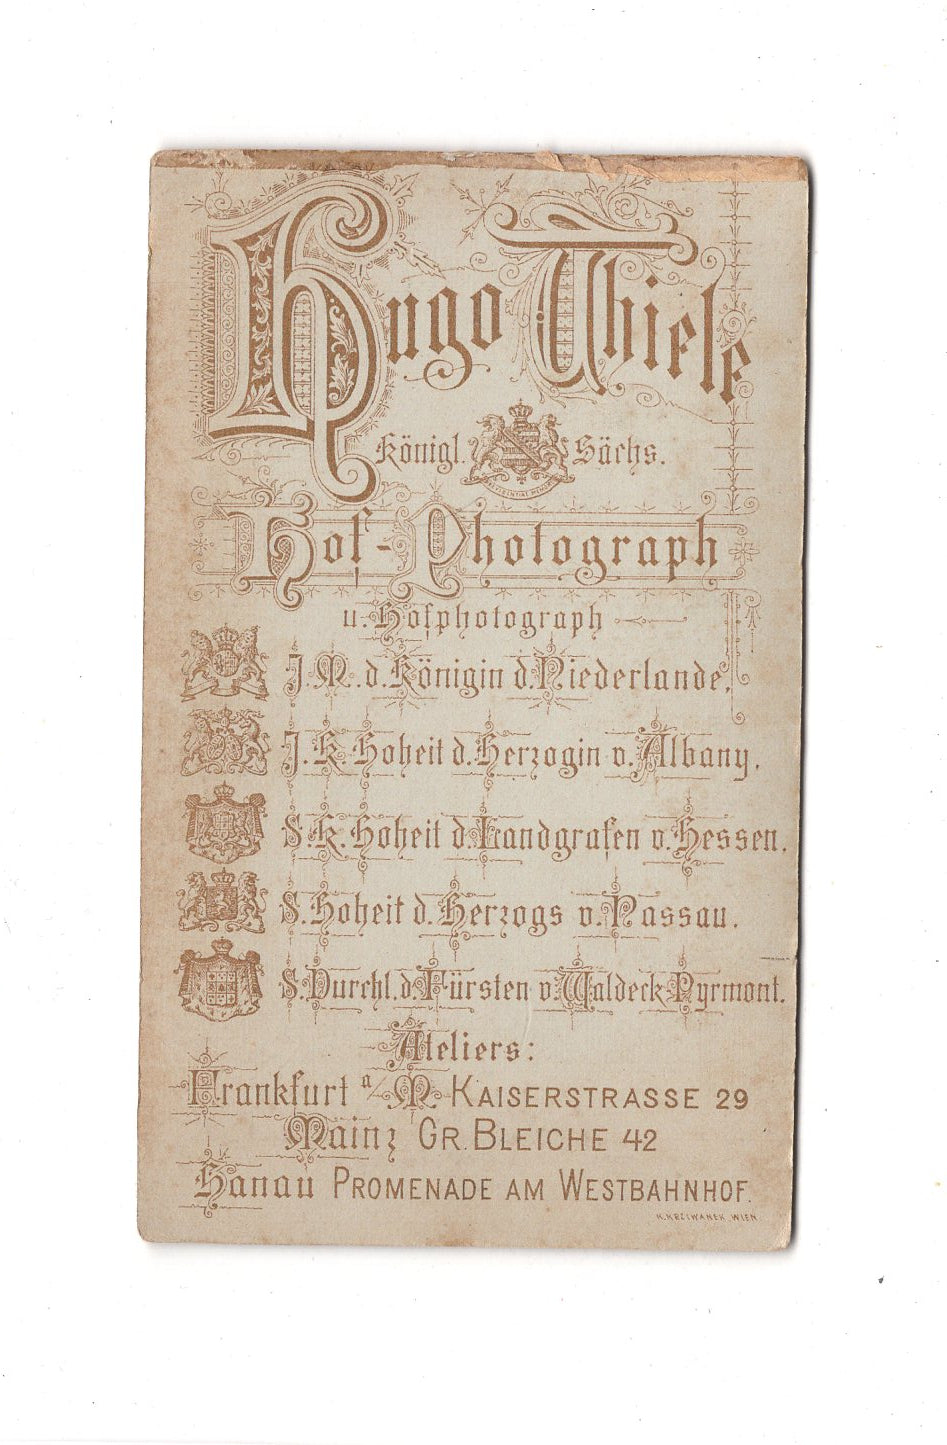 Hugo Thiele
Königl. Sächs.
Hof-Photograph
u. Hofphotograph
J. M. d. Königin d. Niederlande.
J. K. Hoheit d. Herzogin v. Albany.
S. K. Hoheit d. Landgrafen v. Hessen.
S. Hoheit d. Herzogs v. Nassau.
S. Durchl. d. Fürsten v. Waldeck-Pyrmont.
Ateliers:
Frankfurt a/M. KAISERSTRASSE 29
Mainz GR. BLEICHE 42
Hanau PROMENADE AM WESTBAHNHOF.
K. KRZIWANEK WIEN